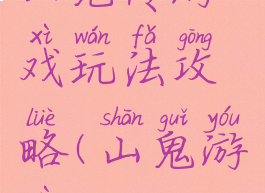 xì wán fǎ gōng
戏玩法攻
lüè shān guǐ yóu
略(山鬼游